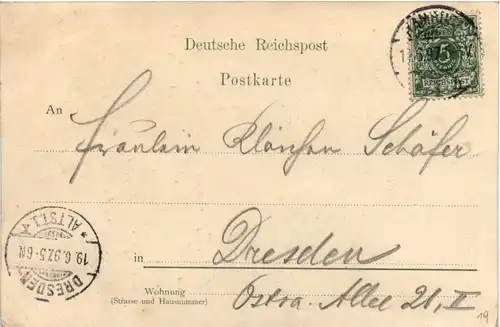 Deutsche Reichspost
Postkarte
5
REICHSPOST
An
Fräulein Klärchen Schäfer
in Dresden
Wohnung
(Strasse und Hausnummer)
Ostra-Allee 21, II
DRESDEN
19.6.97.5-6N.
*ALTST.1*
19